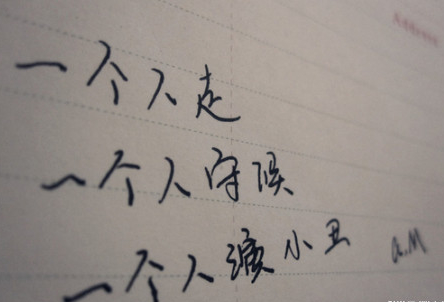 一个人走
一个人守候
一个人演小丑
a.m